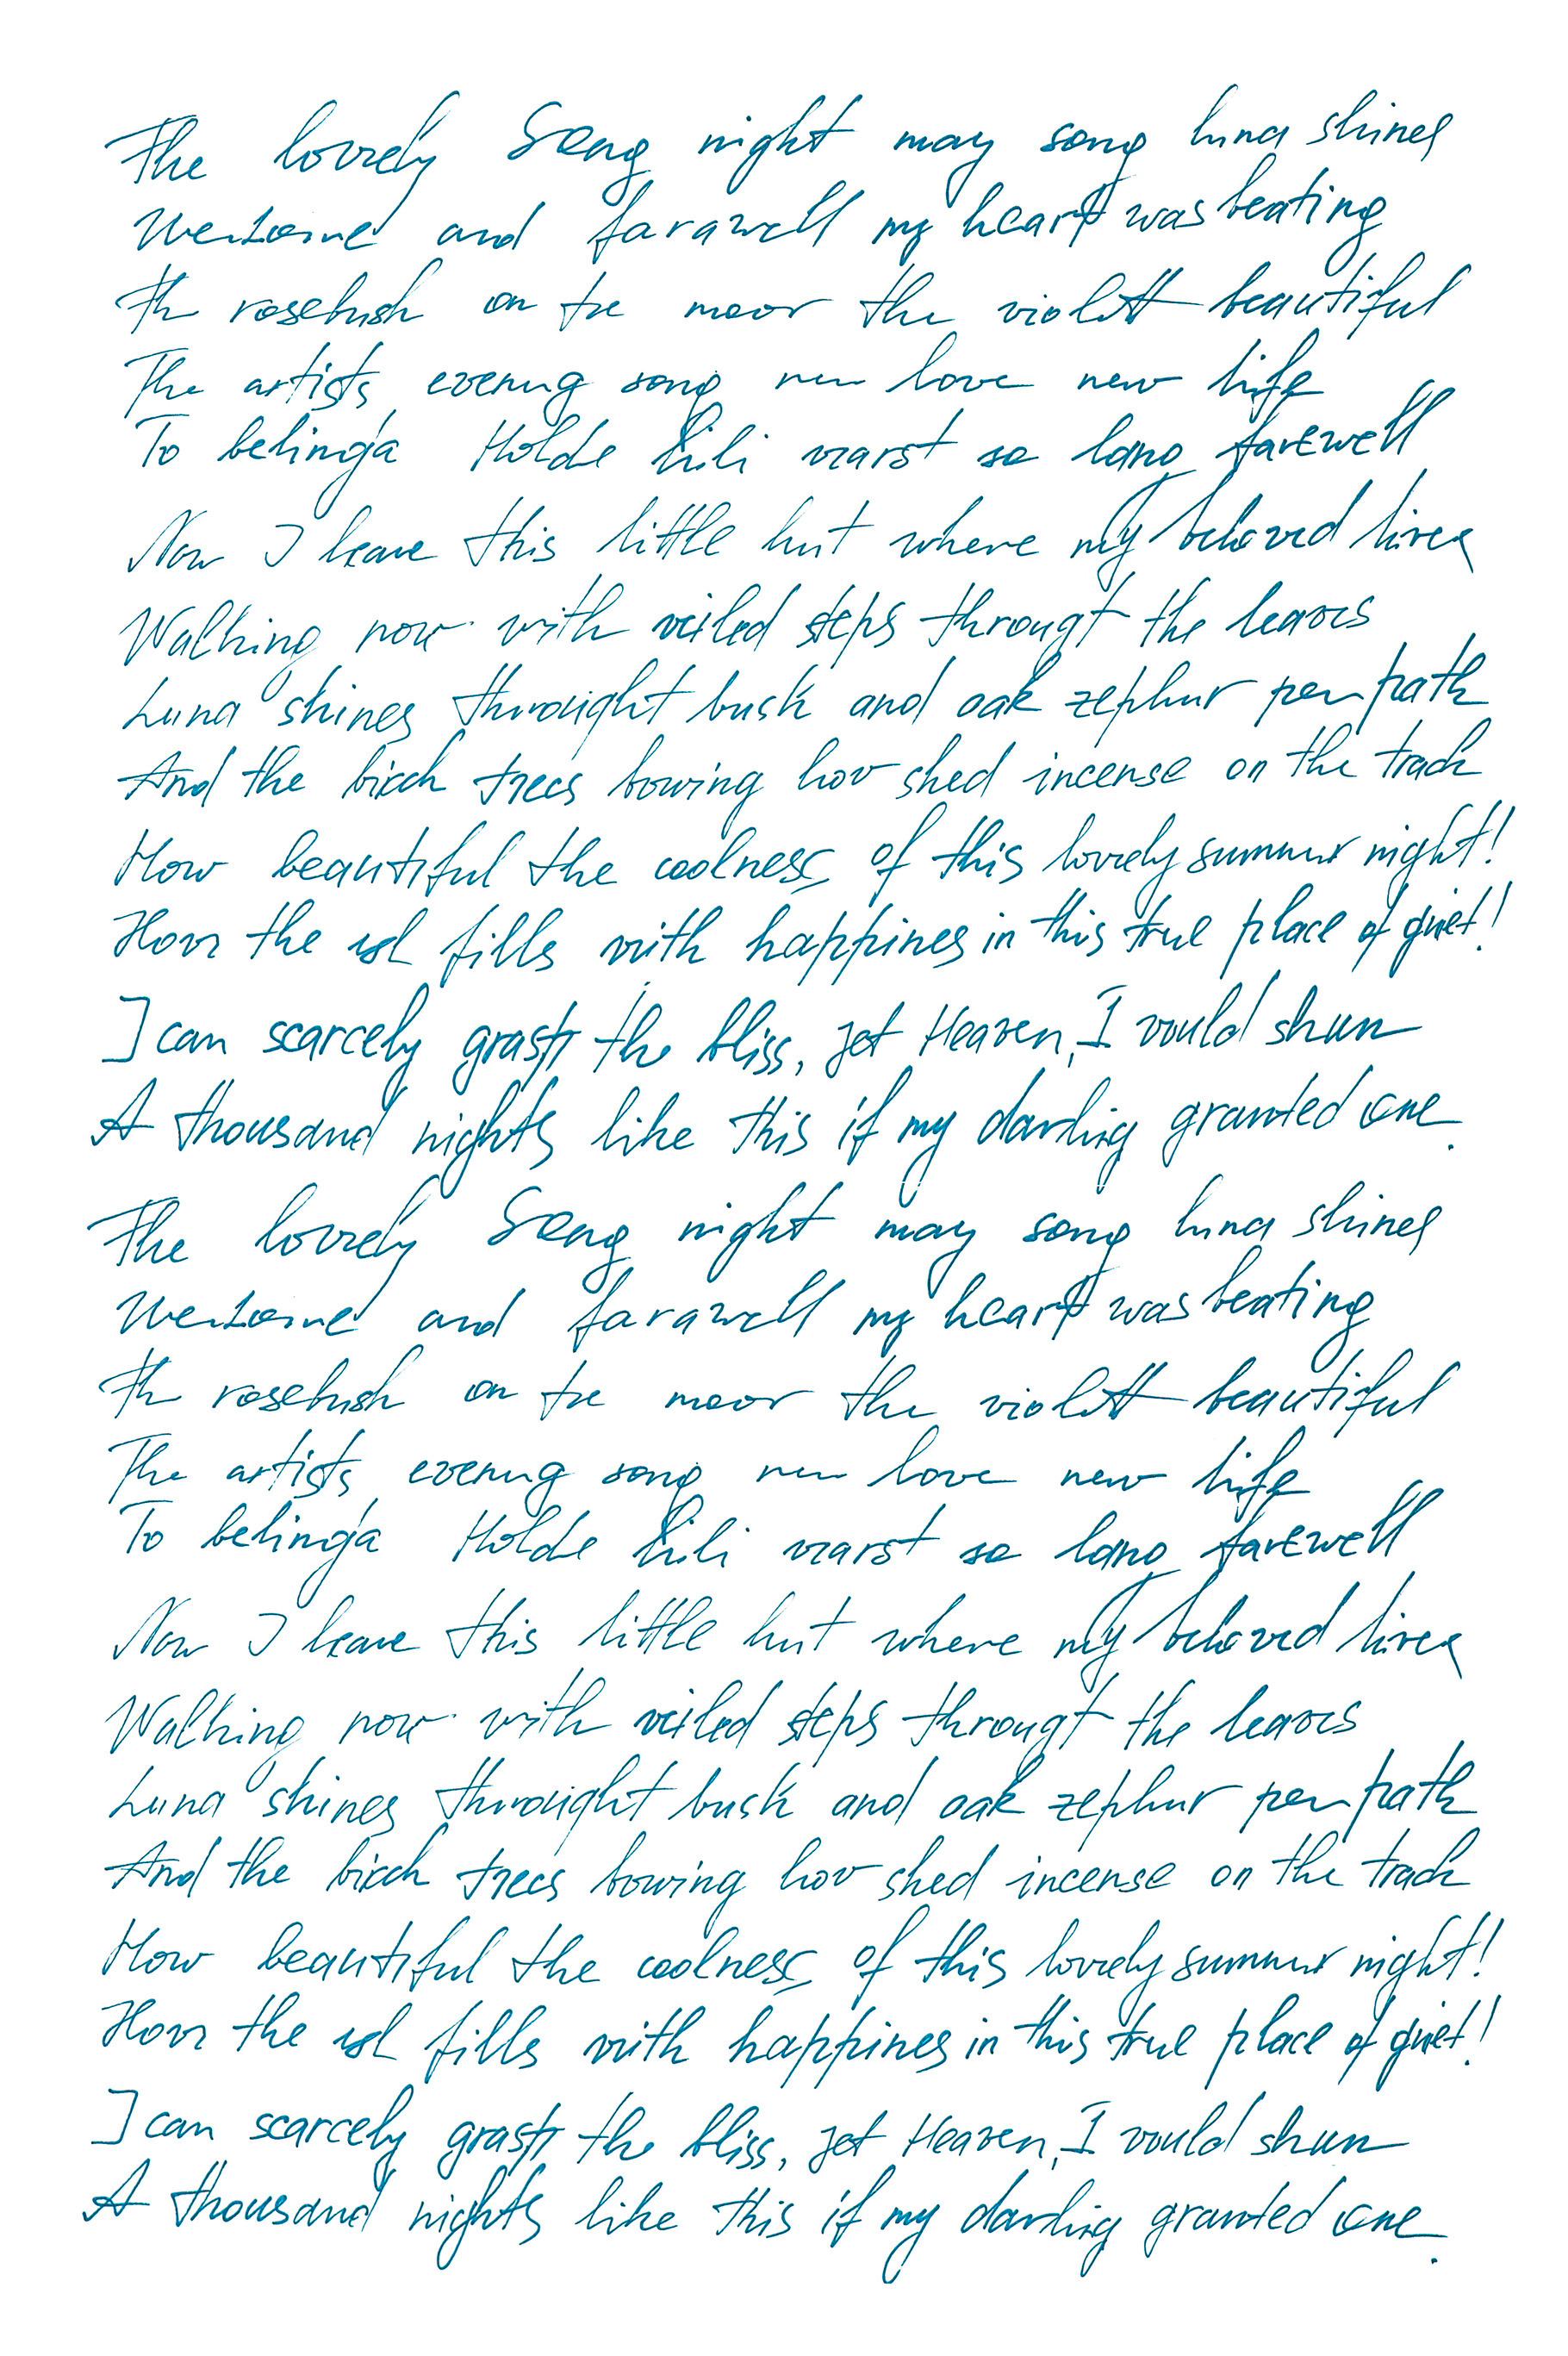 The lovely Song night may song luna shines
Welcome and farawell my heart was beating
Th rosebush on the moor the violett beautiful
The artists evening song new love new life
To belinda Holde Lili warst so lang farewell
Now I leave this little hut where my beloved lives
Walking now with veiled steps througt the leaves
Luna shines throught bush and oak zephur per path
And the birch trees bowing hov shed incense on the track
How beautiful the coolness of this lovely summer night!
How the fills with happines in this true place of quiet!
I can scarcely grasp the bliss, jet Heaven, I would shun
A thousand nights like this if my darling granted one.
The lovely Song night may song luna shines
Welcome and farawell my heart was beating
Th rosebush on the moor the violett beautiful
The artists evening song new love new life
To belinda Holde Lili warst so lang farewell
Now I leave this little hut where my beloved lives
Walking now with veiled steps througt the leaves
Luna shines throught bush and oak zephur per path
And the birch trees bowing hov shed incense on the track
How beautiful the coolness of this lovely summer night!
How the fills with happines in this true place of quiet!
I can scarcely grasp the bliss, jet Heaven, I would shun
A thousand nights like this if my darling granted one.